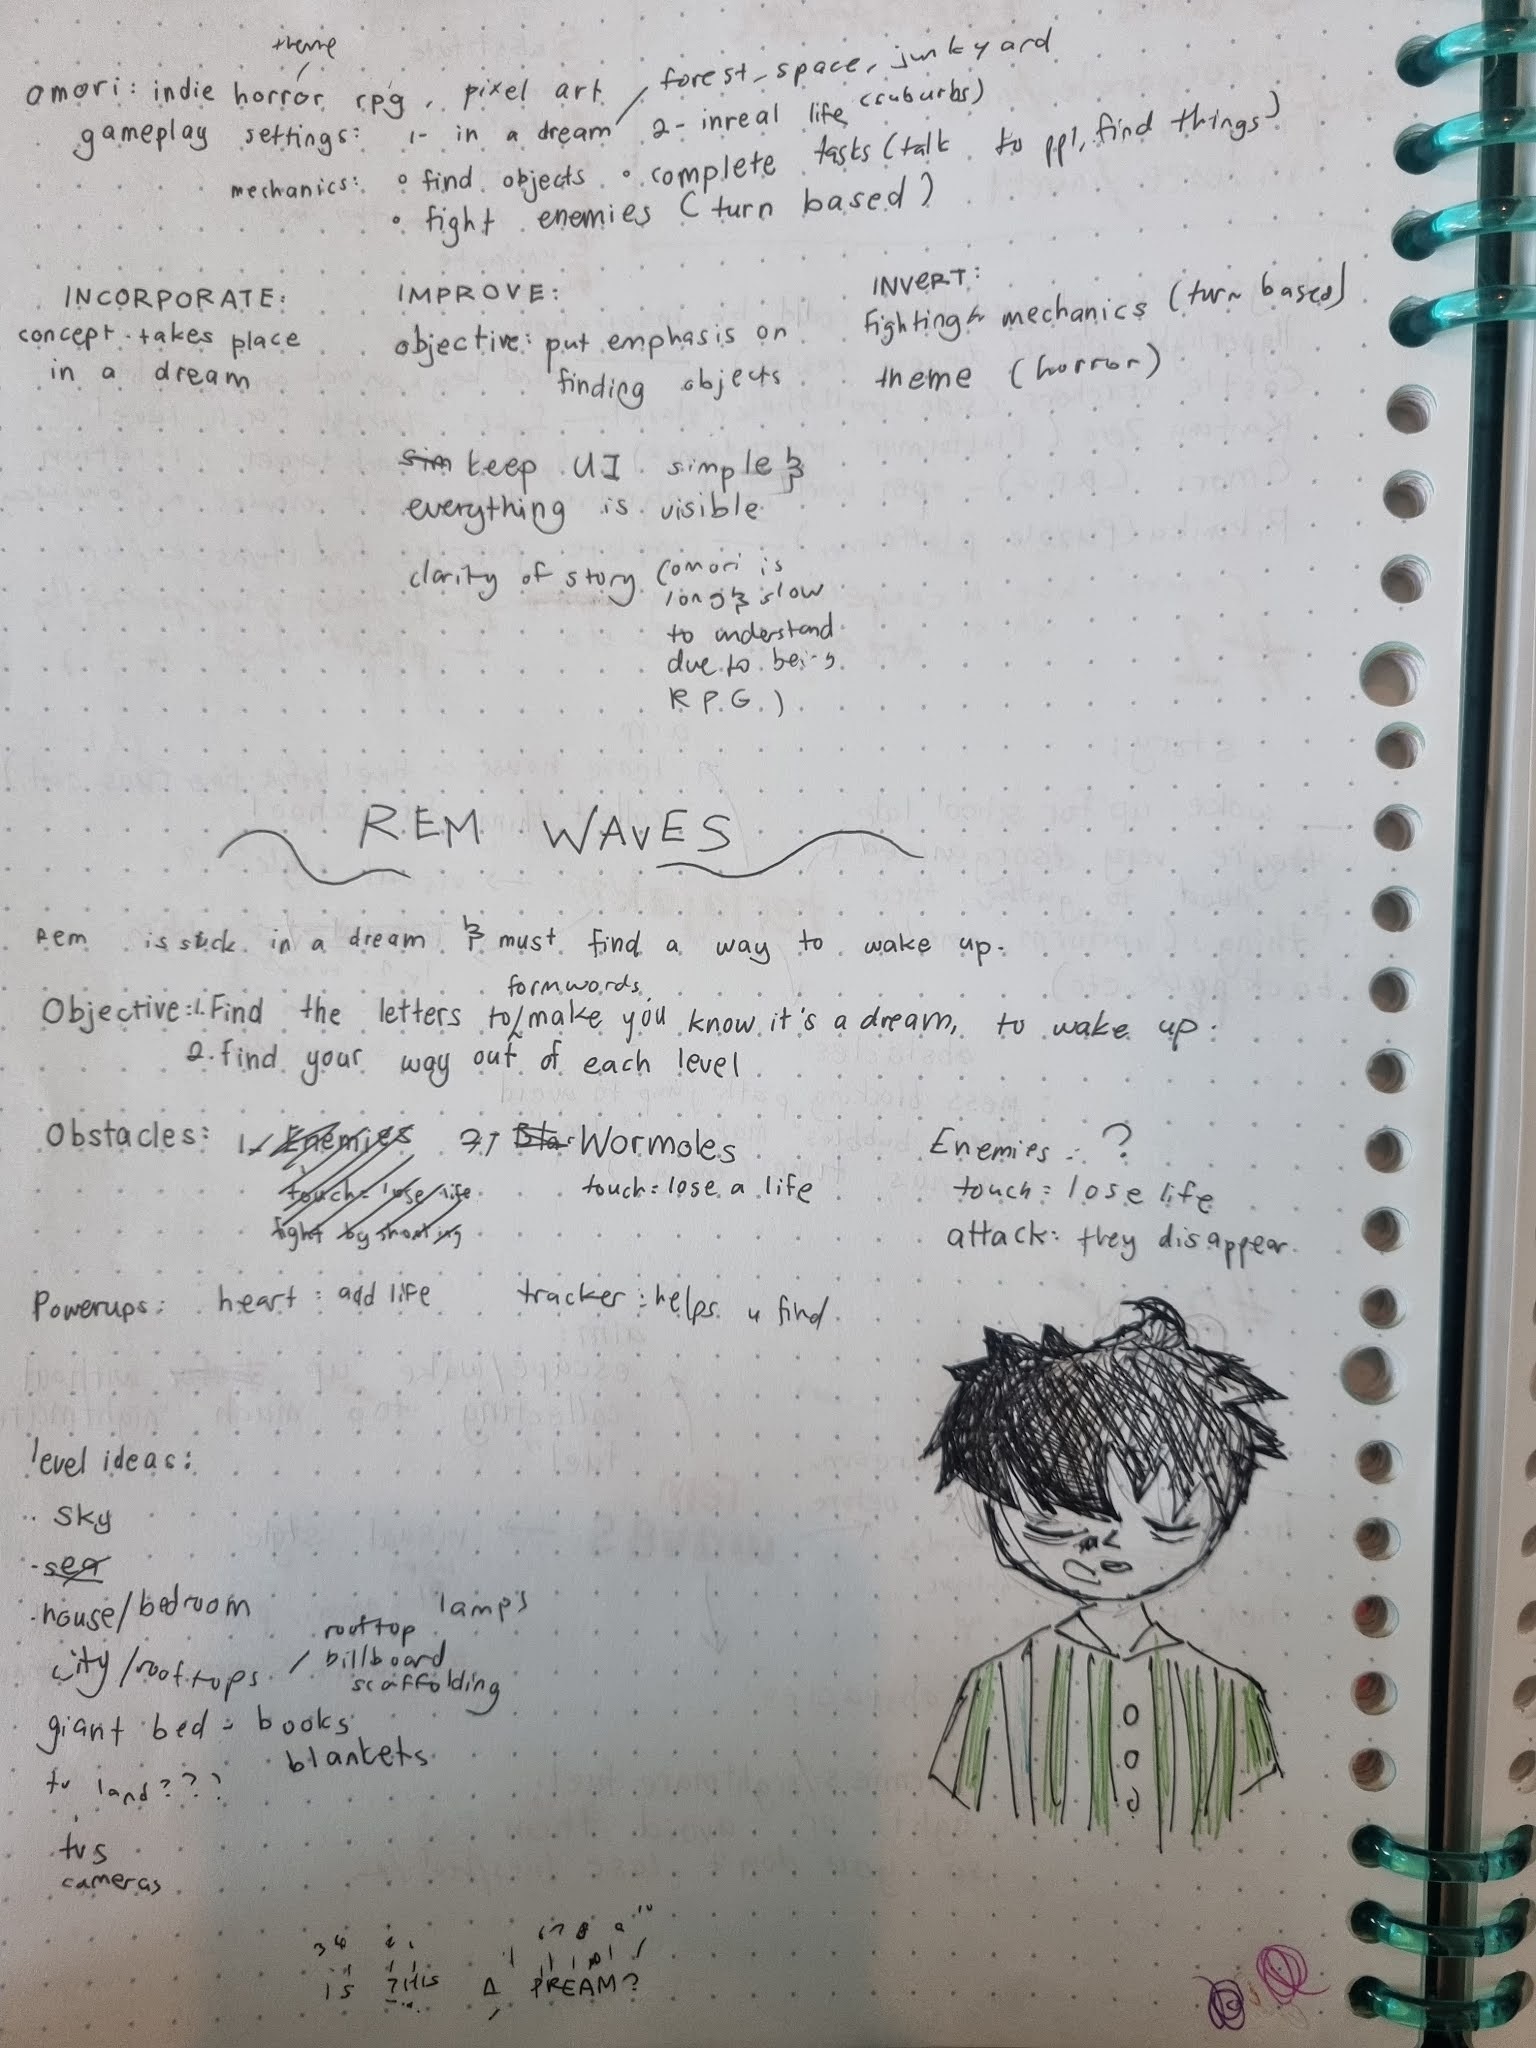 theme
omori: indie horror rpg, pixel art
forest, space, junkyard
gameplay settings: 1- in a dream 2- in real life (suburbs)
mechanics: ° find objects ° complete tasks (talk to ppl, find things)
° fight enemies (turn based)
INCORPORATE:
concept takes place
in a dream
IMPROVE:
objective: put emphasis on
finding objects
sim keep UI simple &
everything is visible
clarity of story (omori is
long & slow
to understand
due to being
RPG.)
INVERT:
fighting mechanics (turn based)
theme (horror)
REM WAVES
Rem is stuck in a dream & must find a way to wake up.
formwords
Objective: 1. Find the letters to/make you know it's a dream, to wake up.
2. find your way out of each level
Obstacles: 1. Enemies
touch = lose life
fight by shooting
2. Bla Wormoles
touch = lose a life
Enemies : ?
touch = lose life
attack: they disappear.
Powerups: heart : add life tracker : helps u find
level ideas:
· sky
· sea
· house/bedroom
lamps
city/rooftops / rooftop
billboard
scaffolding
giant bed - books
blankets
tv land???
tvs
cameras
IS THIS A DREAM?